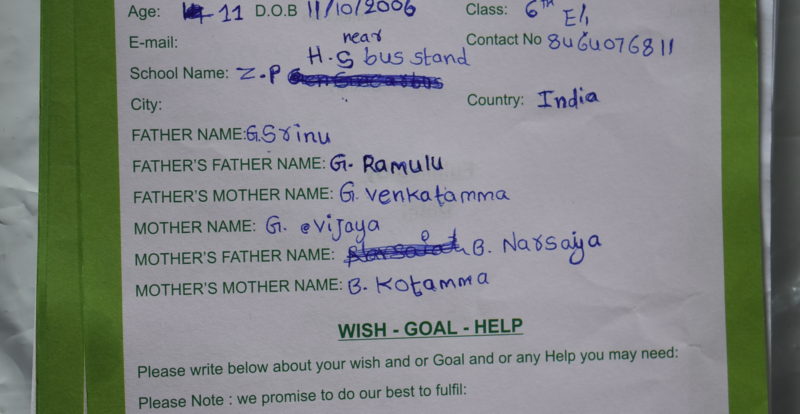 Age: 11 D.O.B 11/10/2006 Class: 6TH
E-mail: near Contact No 8464076811
School Name: Z.P H.S bus stand
City: Country: India
FATHER NAME: G.Srinu
FATHER'S FATHER NAME: G. Ramulu
FATHER'S MOTHER NAME: G. Venkatamma
MOTHER NAME: G. Vijaya
MOTHER'S FATHER NAME: B. Narsaiya
MOTHER'S MOTHER NAME: B. Kotamma
WISH - GOAL - HELP
Please write below about your wish and or Goal and or any Help you may need:
Please Note : we promise to do our best to fulfil: